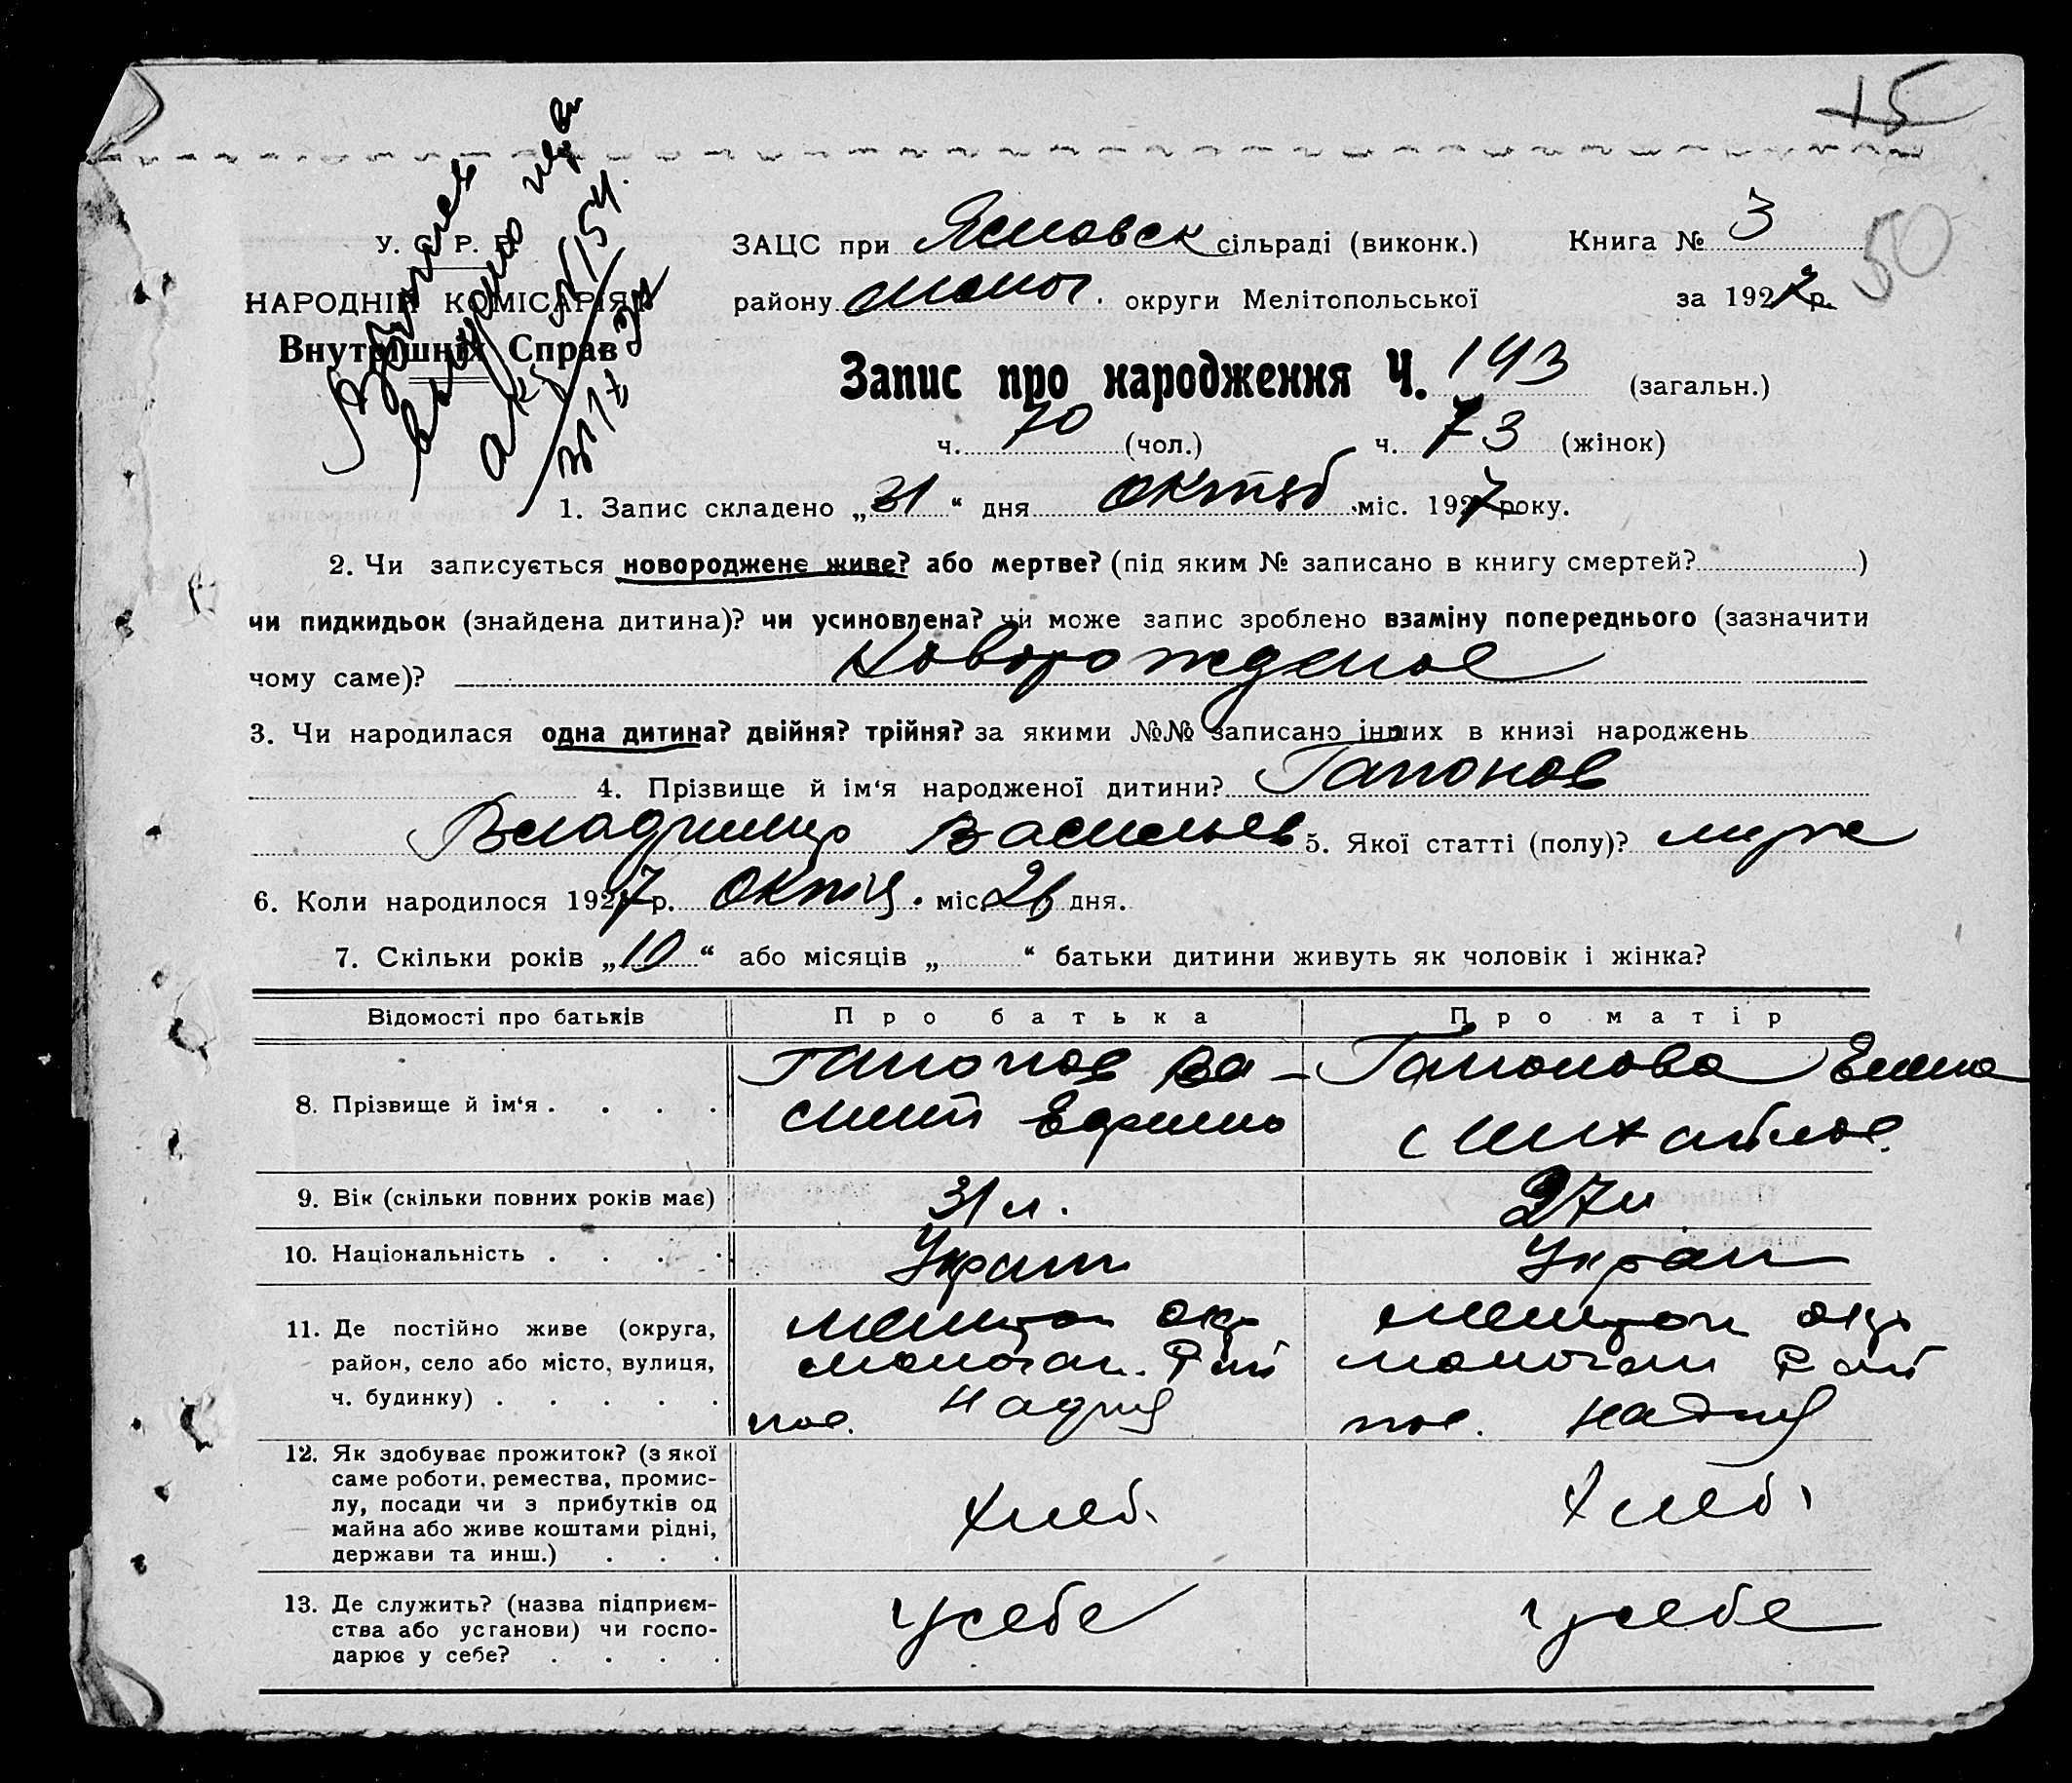 15
50
У. С. Р. Р.
НАРОДНІЙ КОМІСАРІЯТ
Внутрішніх Справ
ЗАЦС при сільраді (виконк.) Книга № 3
району округи Мелітопольської за 1927 р.
Запис про народження Ч. 143 (загальн.)
ч. 70 (чол.) ч. 73 (жінок)
1. Запис складено „31“ дня октяб міс. 1927 року.
2. Чи записується новороджене живе? або мертве? (під яким № записано в книгу смертей? )
чи пидкидьок (знайдена дитина)? чи усиновлена? чи може запис зроблено взаміну попереднього (зазначити
чому саме)? Новорожденое
3. Чи народилася одна дитина? двійня? трійня? за якими №№ записано інших в книзі народжень
4. Прізвище й ім‘я народженої дитини? Гапонов
Владимир Васильев 5. Якої статті (полу)? муж
6. Коли народилося 1927 р. октяб. міс. 26 дня.
7. Скільки років „10“ або місяців „ “ батьки дитини живуть як чоловік і жінка?
Відомості про батьків Про батька Про матір
8. Прізвище й ім‘я . . . . Гапонов Ва- Гапонова Елена
силий Ефимов Михайлов.
9. Вік (скільки повних років має) 31 л. 27 л
10. Національність . . . . Украин Украин
11. Де постійно живе (округа, Мелитоп окр Мелитоп окр
район, село або місто, вулиця, Рай Рай
ч. будинку) . . . . . пос. пос.
12. Як здобуває прожиток? (з якої
саме роботи, ремества, промис-
лу, посади чи з прибутків од Хлеб. Хлеб.
майна або живе коштами рідні,
держави та инш.) . . .
13. Де служить? (назва підприєм- у себе у себе
ства або установи) чи госпо-
дарює у себе? . . . .